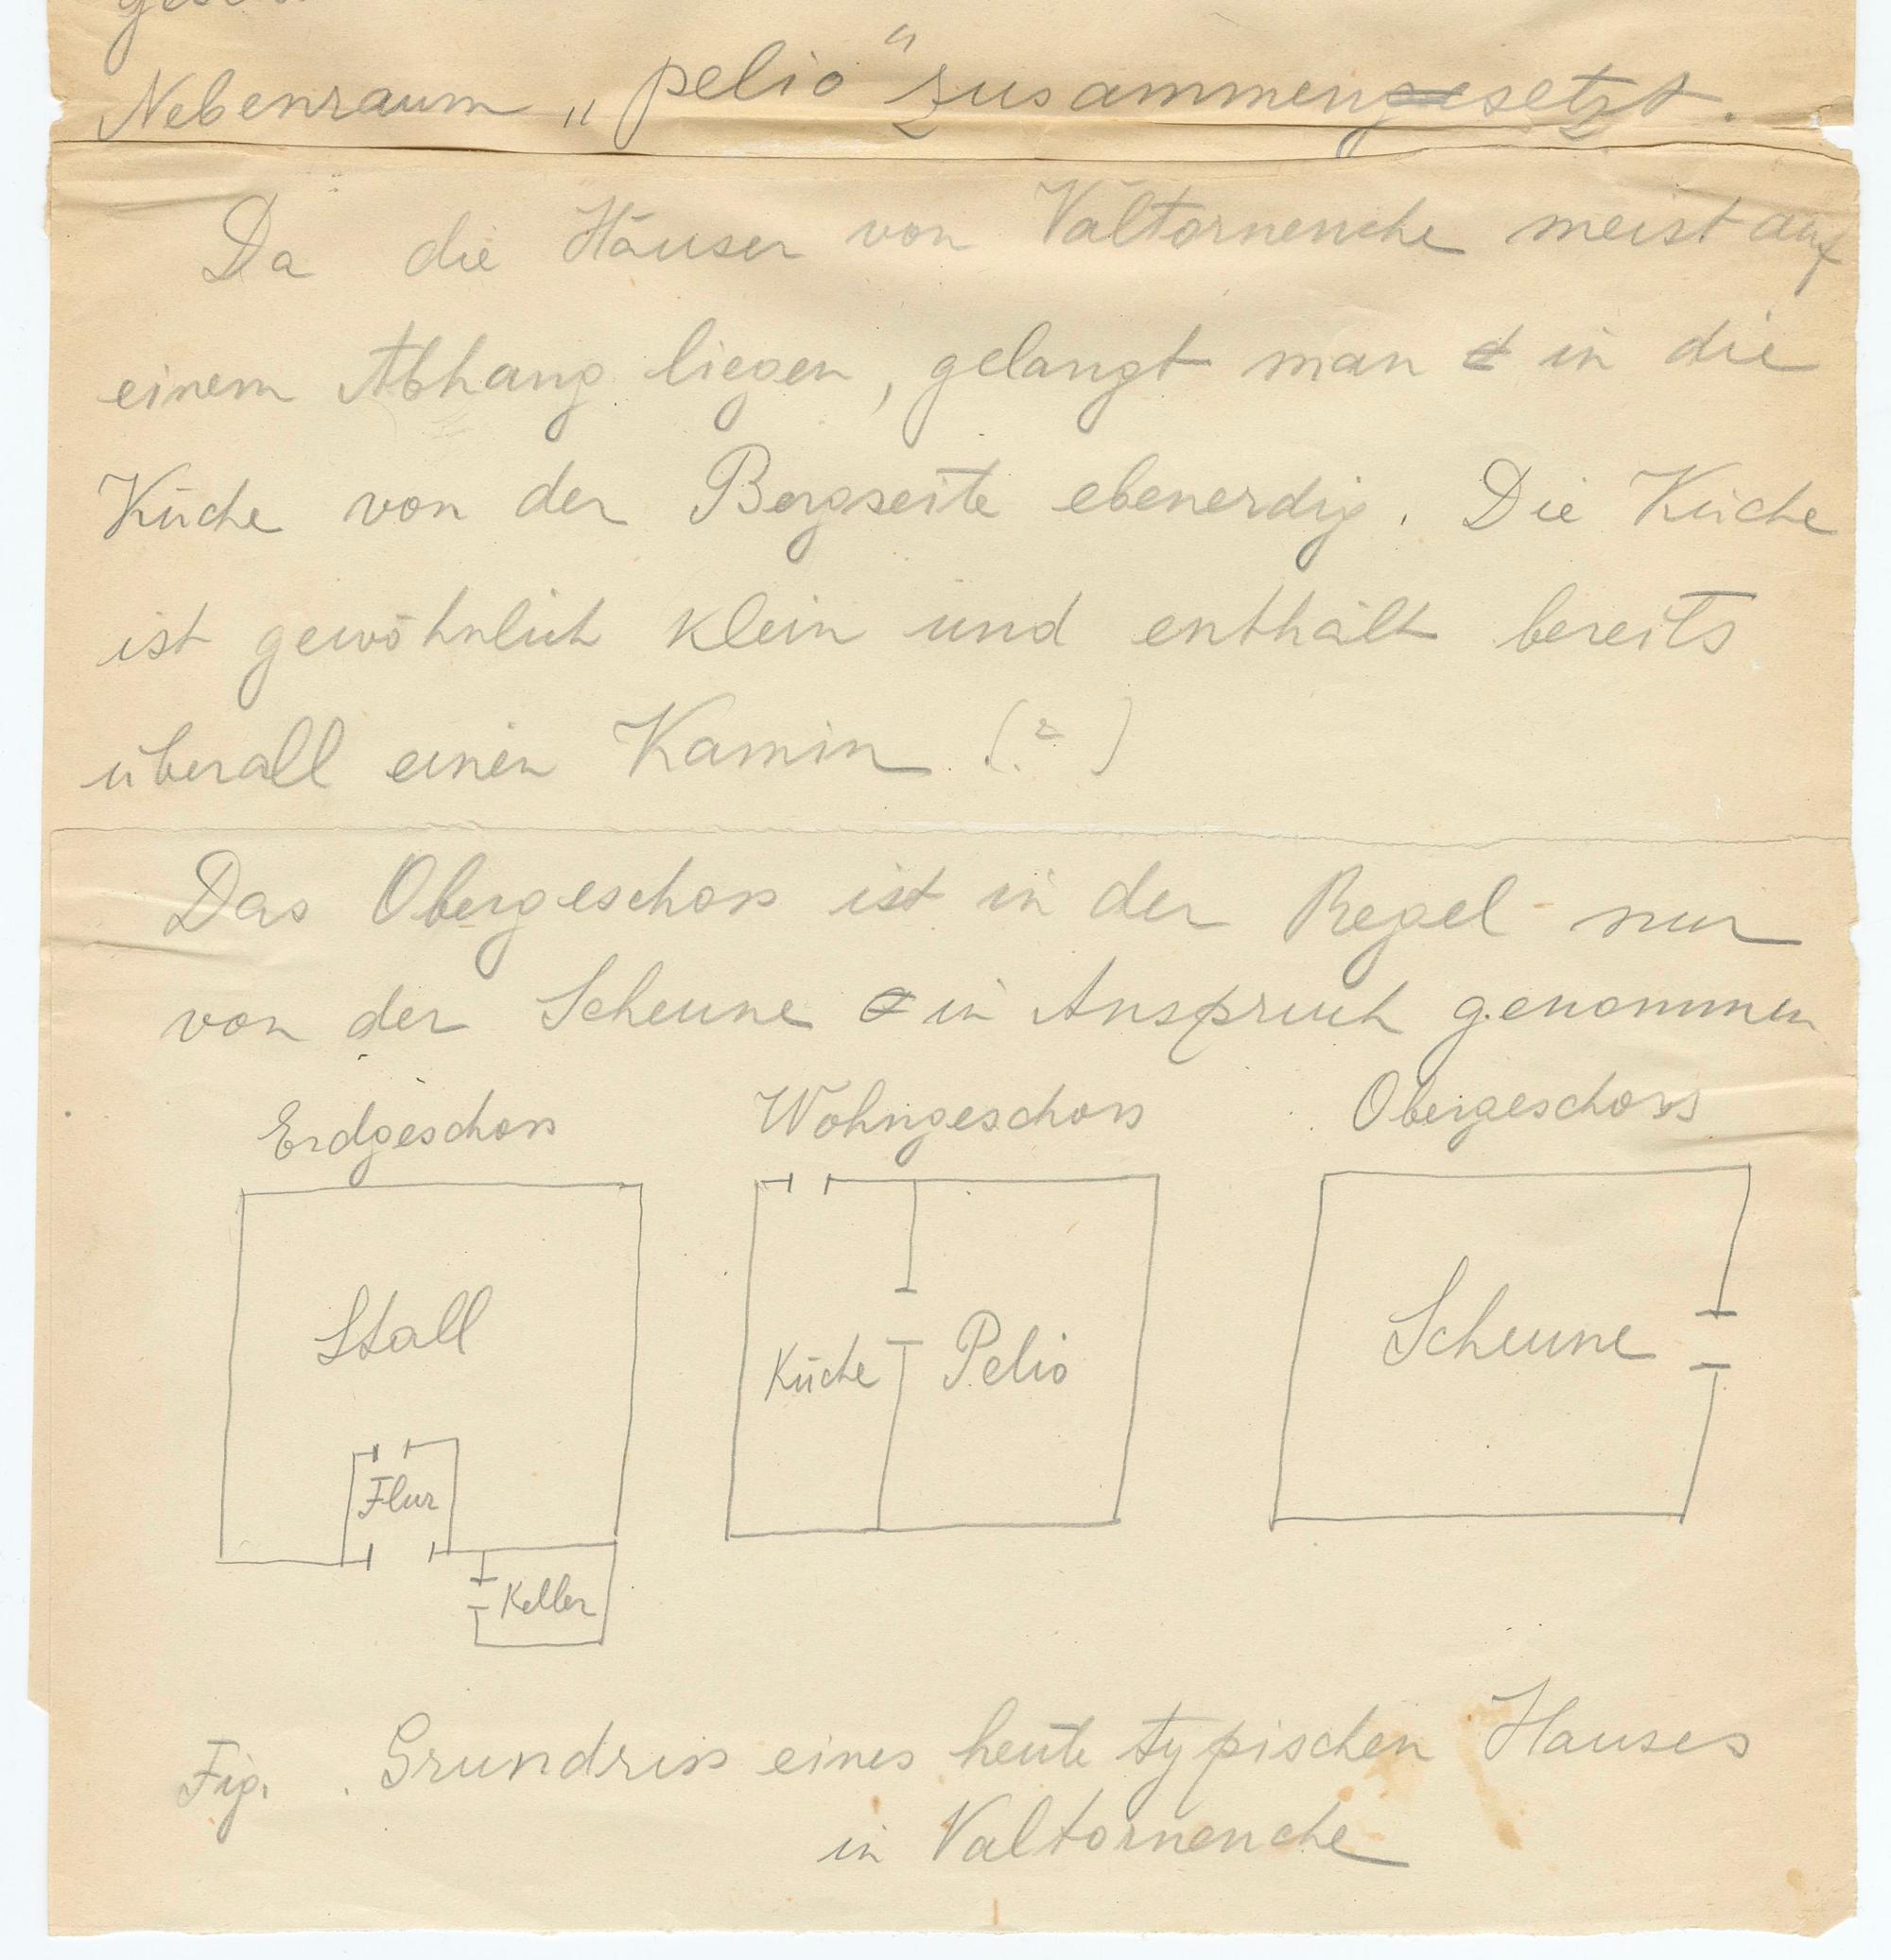 Nebenraum „pelio“ zusammengesetzt.
Da die Häuser von Valtornenche meist auf
einem Abhang liegen, gelangt man in die
Küche von der Bergseite ebenerdig. Die Küche
ist gewöhnlich klein und enthält bereits
überall einen Kamin. (?)
Das Obergeschoss ist in der Regel nur
von der Scheune in Anspruch genommen
Erdgeschoss Wohngeschoss Obergeschoss
Stall
Küche Pelio
Scheune
Flur
Keller
Fig. . Grundriss eines heute typischen Hauses
in Valtornenche